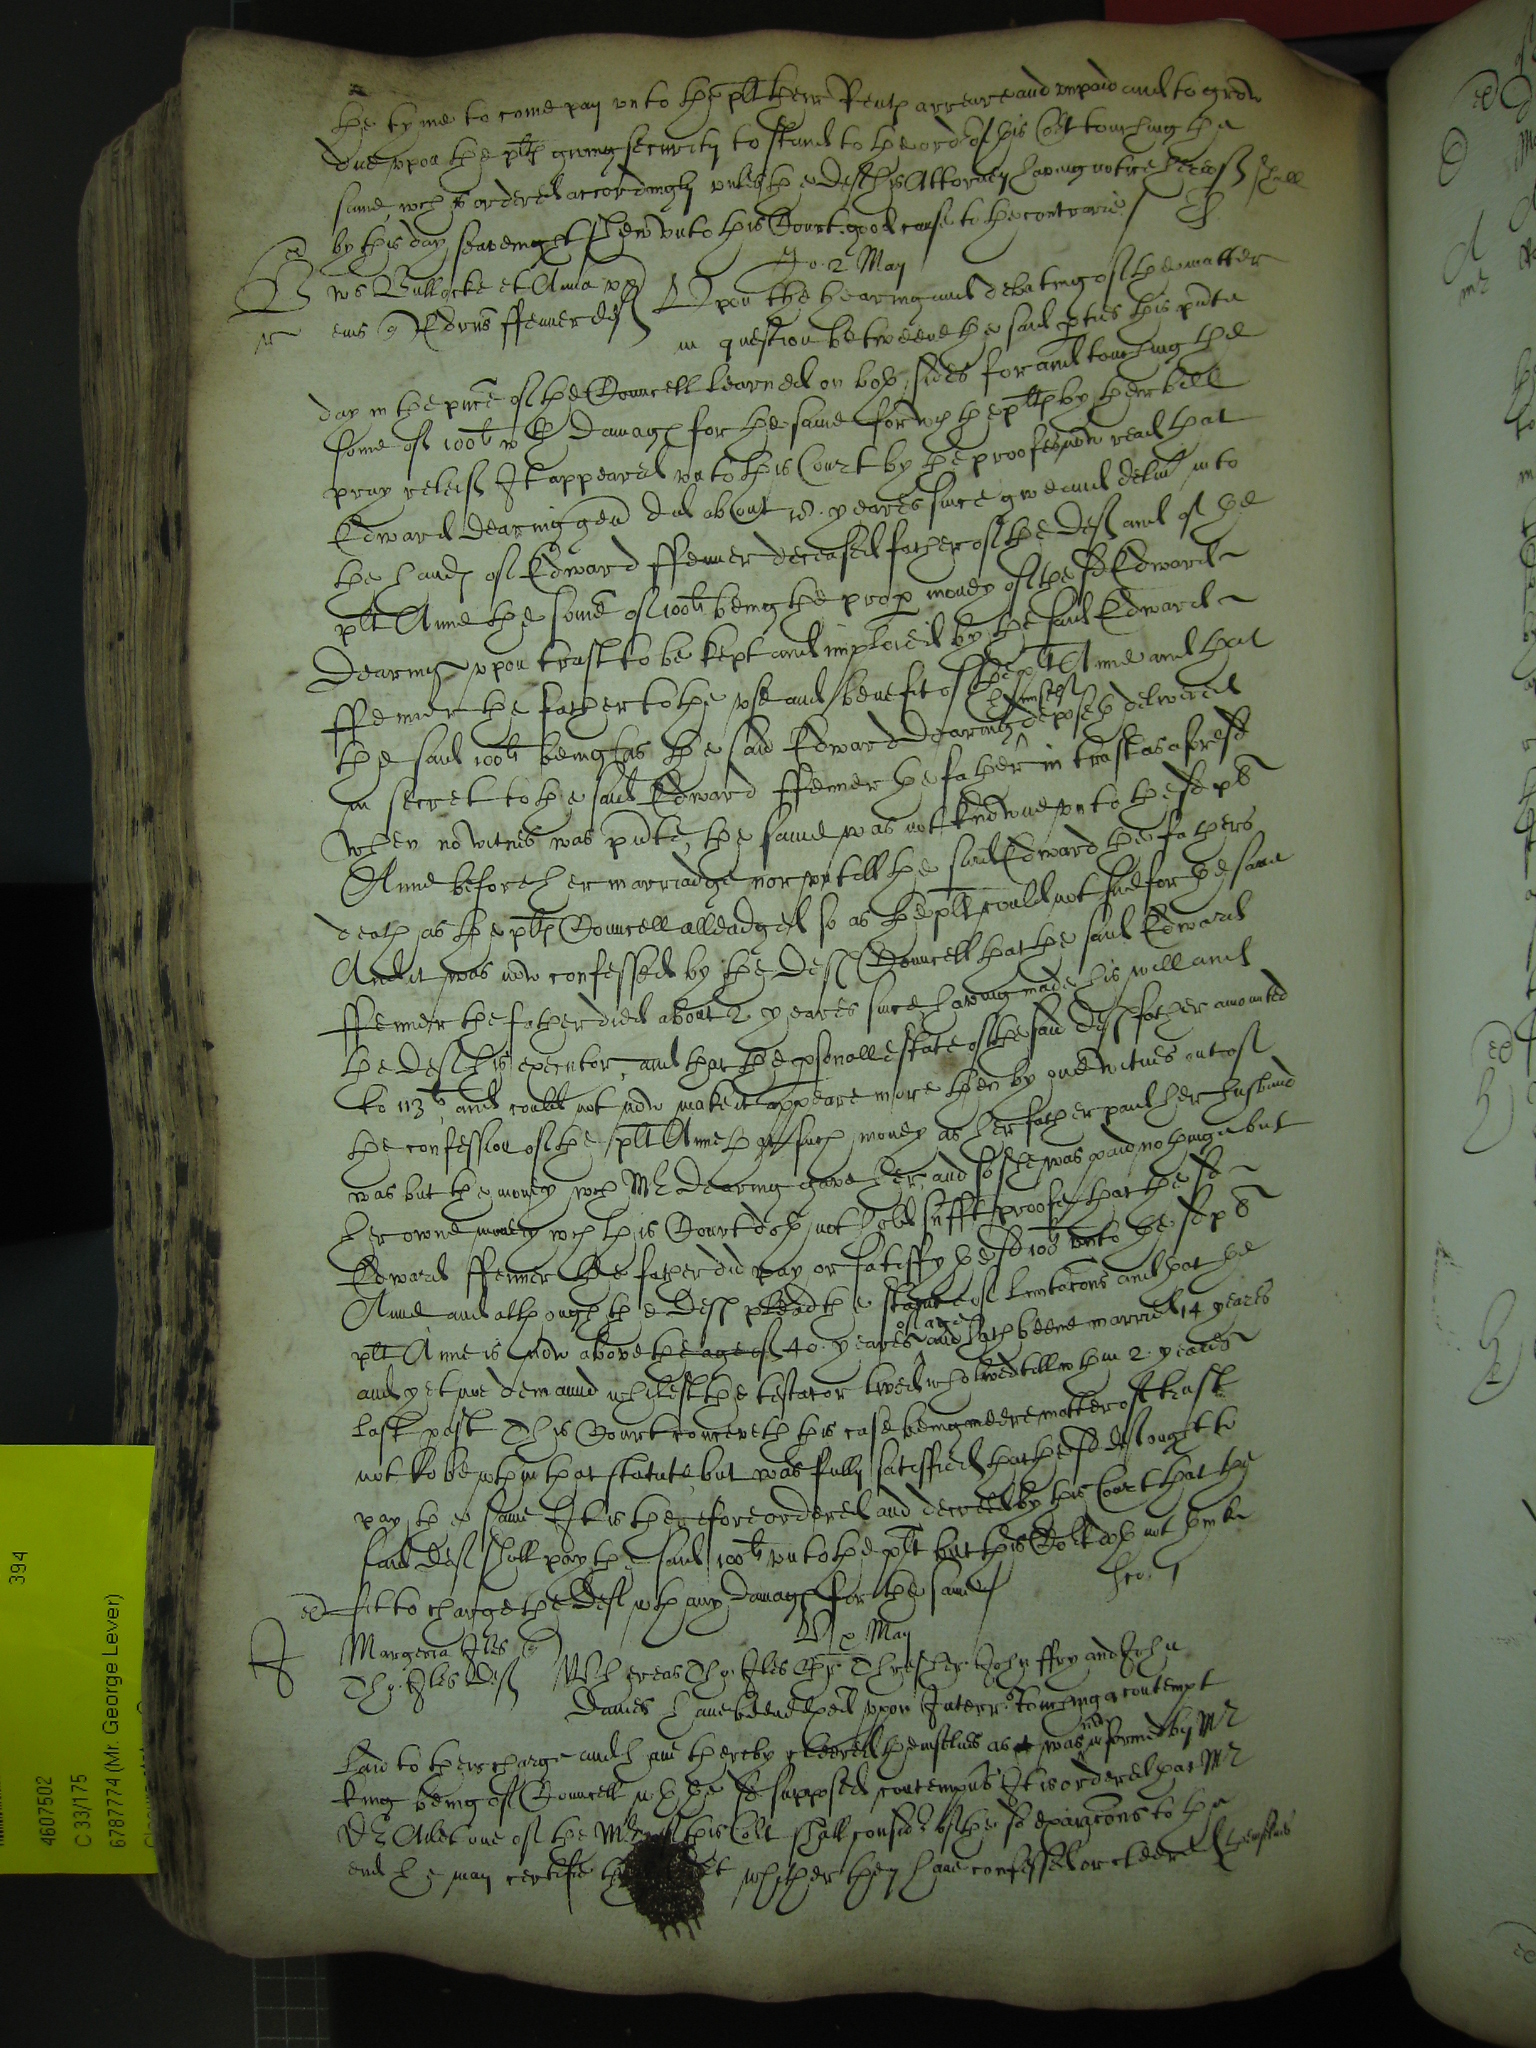 the tyme to come pay unto the plt their Rente arreare and unpaid and to grow
due upon the plts giving security to stand to the order of this Cort touching the
same, wch is ordered accordingly unles the deft his Attorney having notice hereof shall
by this day seavenight shew unto this Court good cause to the contrarie
Jo. 2 May
Bullocke et Anna ux
eius q Edrus ffenner deft
Upon the hearing and debating of the matter
in question betweene the said pties this pnte
day in the pnce of the Councell learned on both sides for and touching the
some of 100li wth damage for the same for wch the plts by their bill
pray releif It appeared unto this Court by the proofes now read that
Edward Dearing gen did about 18. yeares since give and deliver into
the hands of Edward ffenner deceased father of the deft and of the
plt Anne the some of 100li being the proper money of the sd Edward
Dearing upon trust to be kept and imploied by the said Edward
ffenner the father to the use and benefit of the plt Anne and that
the said 100li being as the said Edward Dearing himself deposeth delivered
in secret to the said Edward ffenner the father in trust as aforesd
when no witnes was pnte, the same was not knowne unto the sd pl
Anne before her marriadge nor untill the said Edward the fathers
death as the plts Councell alleadged so as the plt could not sue for the same
And it was now confessed by the defts Councell that the said Edward
ffenner the father died about 2 yeares since having made his will and
the deft his executor, and that the psonall estate of the said defts father amounted
to 113li and could not now make it appeare more then by one witnes out of
the confession of the plt Anne that such money as her father paid her husband
was but the money wch Mr Dearing gave her, and so she was paid nothing but
her owne money wch this Court doth not hold sufft proofe that the sd
Edward ffenner the father did pay or satisfy the sd 100li unto the sd pl
Anne and although the deft plead the statute of limitacons and that the
plt Anne is now above the age of 40. yeares of age and hath beene married 14 yeares
and yet no demaund whilest the testator lived who lived till wthin 2. yeares
last past This Court conceiveth this case being meere matter of trust
not to be wthin that statute, but was fully satisfied that the sd deft ought to
pay the same It is therefore ordered and decreed by this Court that the
said deft shall pay the said 100li unto the plt but this Court doth not thinke
fit to charge the deft wth any damage for the same
May
Margeria Iles
Tho: Iles deft
Whereas Tho: Iles Chr: Thresher John ffry and John
Davies have beene exed upon Interr: touching a contempt
laid to their charge and have thereby cleered themselves as was informed by Mr
King being of Councell wth the sd supposed contempnrs It is ordered that Mr
Dr Ailet one of the Mrs of this Cort shall consider of the sd exaiacons to the
end he may certifie whither they have confessed or cleered themselves
394
4607502
C 33/175
6787774 (Mr. George Lever)